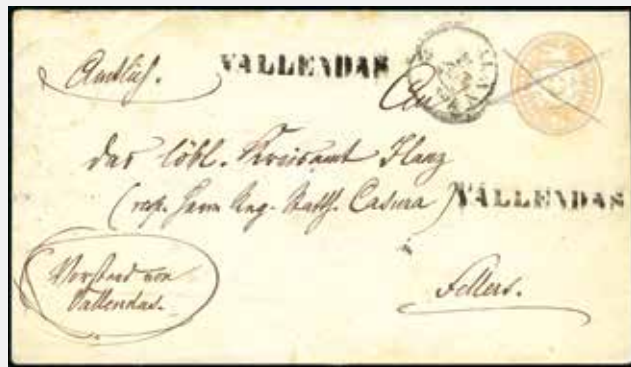 Amtlich.
VALLENDAS
An
das löbl. Kreisamt Ilanz
(resp. Herrn Reg. Statth. Casura)
VALLENDAS
in
Vorstand von
Vallendas.
Fellers.